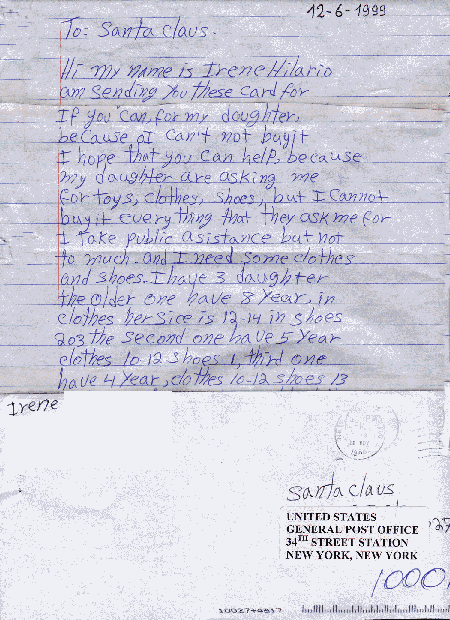 12-6-1999
To: Santa Claus.
Hi my name is Irene Hilario
am sending you these card for
If you can, for my daughter,
because I can't not buyit
I hope that you can help, because
my daughter are asking me
for toys, clothes, shoes, but I cannot
buy it everything that they ask me for
I Take public asistance but not
to much. and I need some clothes
and shoes. I have 3 daughter
the older one have 8 year, in
clothes her sice is 12-14 in shoes
203 the second one have 5 year
clothes 10-12 shoes 1, third one
have 4 year, clothes 10-12 shoes 13
Irene
Santa Claus
UNITED STATES
GENERAL POST OFFICE
34TH STREET STATION
NEW YORK, NEW YORK
1000